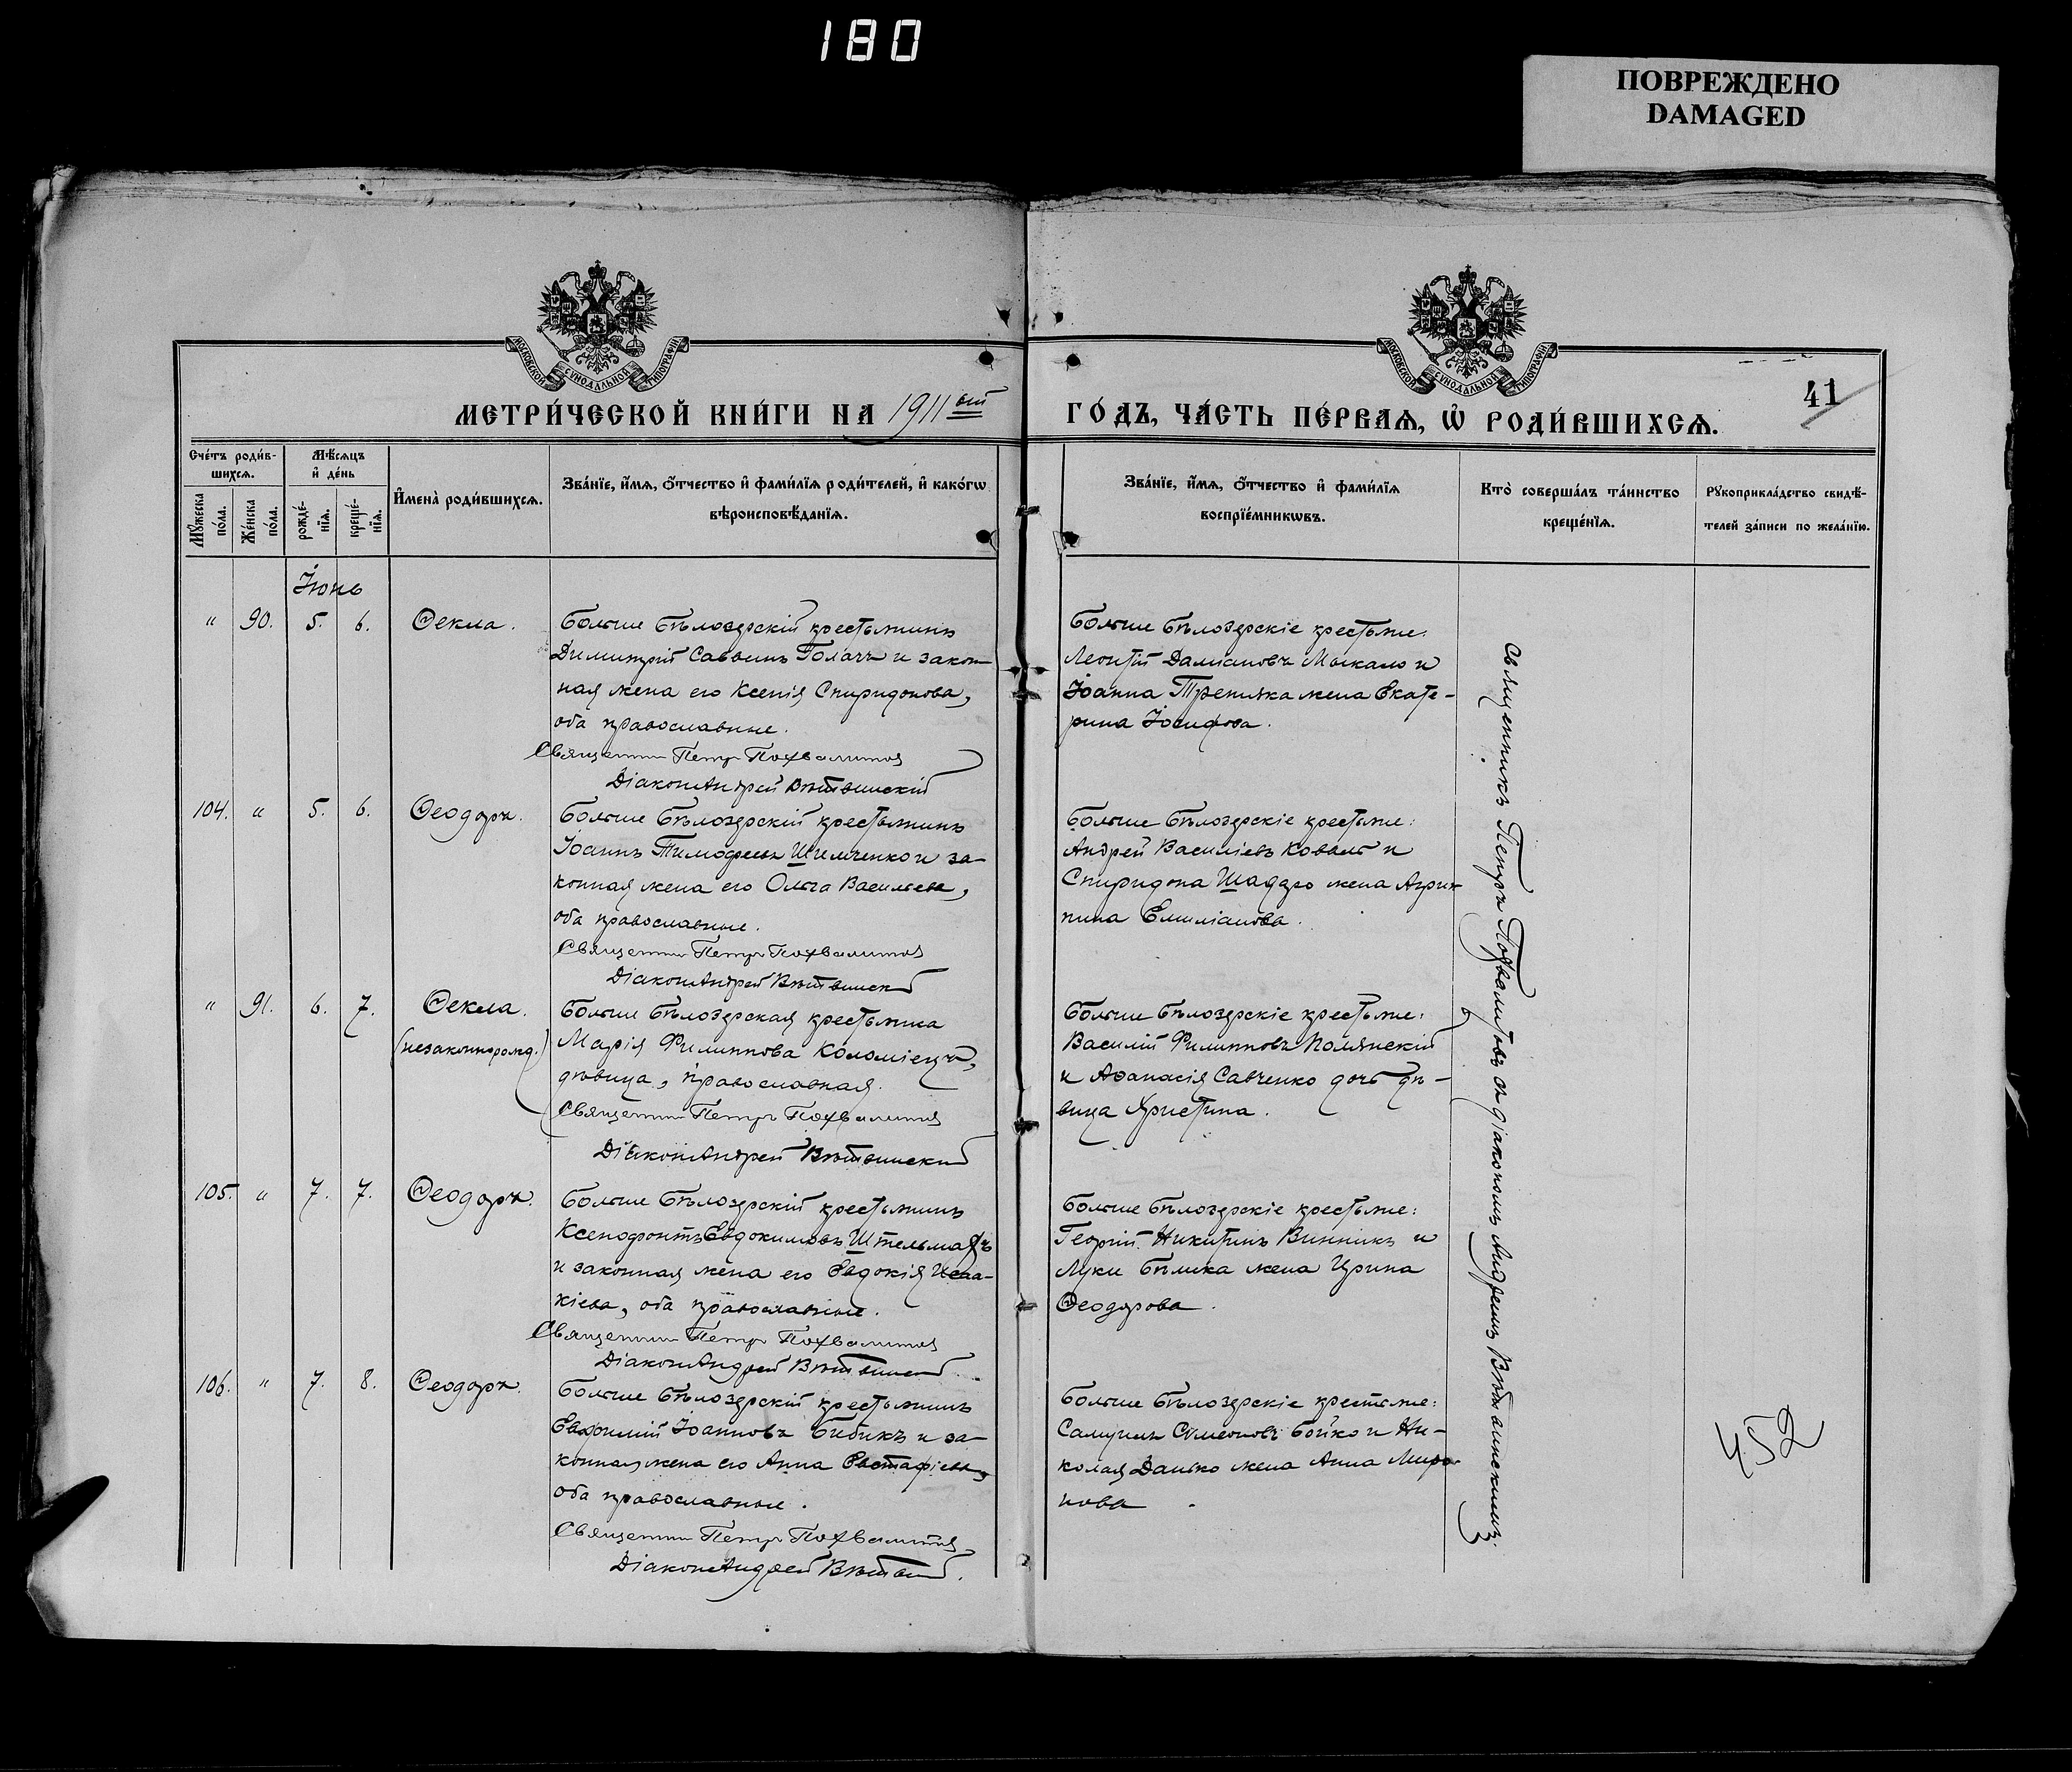 180
ПОВРЕЖДЕНО
DAMAGED
МОСКОВСКОЙ СѴНОДАЛЬНОЙ ТИПОГРАФІИ
МОСКОВСКОЙ СѴНОДАЛЬНОЙ ТИПОГРАФІИ
41
МЕТРИ́ЧЕСКОЙ КНИ́ГИ НА 1911 ый ГО́ДЪ, ЧА́СТЬ ПЕ́РВАѦ, Ѡ҆ РОДИ́ВШИХСѦ.
Сче́тъ роди́в-
шихсѧ.
Мꙋ́жеска по́ла.
Же́нска по́ла.
Мѣ́сѧцъ и҆ де́нь
рожде́-нїѧ.
креще́-нїѧ.
И҆мена̀ роди́вшихсѧ.
Зва́нїе, и҆́мѧ, ѻ҆́тчество и҆ фами́лїѧ роди́телей, и҆ како́гѡ
вѣроисповѣ́данїѧ.
Зва́нїе, и҆́мѧ, ѻ҆́тчество и҆ фами́лїѧ
воспрїе́мникѡвъ.
Кто̀ соверша́лъ та́инство
креще́нїѧ.
Рꙋкоприкла́дство свидѣ́-
телей за́писи по жела́нїю.
Іюнь
" 90. 5. 6. Ѳекла.
Больше Бѣлозерскій крестьянинъ
Димитрій Саввинъ Голачъ и закон-
ная жена его Ксенія Спиридонова,
оба православные.
Священник Петр Похвалитов
Діакон Андрей Вѣтвинский
Больше Бѣлозерскіе крестьяне:
Леонтій Даміановъ Мыкало и
Іоанна Трепияка жена Екате-
рина Іосифова.
104. " 5. 6. Ѳеодоръ.
Больше Бѣлозерскій крестьянинъ
Іоаннъ Тимофеевъ Шиленко и за-
конная жена его Ольга Васильева,
оба православные.
Священник Петр Похвалитов
Діакон Андрей Вѣтвинский
Больше Бѣлозерскіе крестьяне:
Андрей Василіевъ Коваль и
Спиридона Шадуро жена Агрип-
пина Емиліанова.
" 91. 6. 7. Ѳекла.
(незаконнорожд.)
Больше Бѣлозерская крестьянка
Марія Филиппова Коломіецъ,
дѣвица, православная.
Священник Петр Похвалитов
Діакон Андрей Вѣтвинский
Больше Бѣлозерскіе крестьяне:
Василій Филипповъ Полянскій
и Аѳанасія Савченко дочь дѣ-
вица Христина.
105. " 7. 7. Ѳеодоръ.
Больше Бѣлозерскій крестьянинъ
Ксенофонтъ Евдокимовъ Штельмахъ
и законная жена его Евдокія Исаа-
кіева, оба православные.
Священник Петр Похвалитов
Діакон Андрей Вѣтвинский
Больше Бѣлозерскіе крестьяне:
Георгій Никитинъ Винникъ и
Луки Бѣлика жена Ирина
Ѳеодорова.
106. " 7. 8. Ѳеодоръ.
Больше Бѣлозерскій крестьянинъ
Евфимій Іоанновъ Бибикъ и за-
конная жена его Анна Евстафіева,
оба православные.
Священник Петр Похвалитов
Діакон Андрей Вѣтвин
Больше Бѣлозерскіе крестьяне:
Самуилъ Сѵмеоновъ Бойко и Ни-
колая Данько жена Анна Миро-
нова
Священникъ Петръ Похвалитовъ съ діакономъ Андреемъ Вѣтвинскимъ.
452